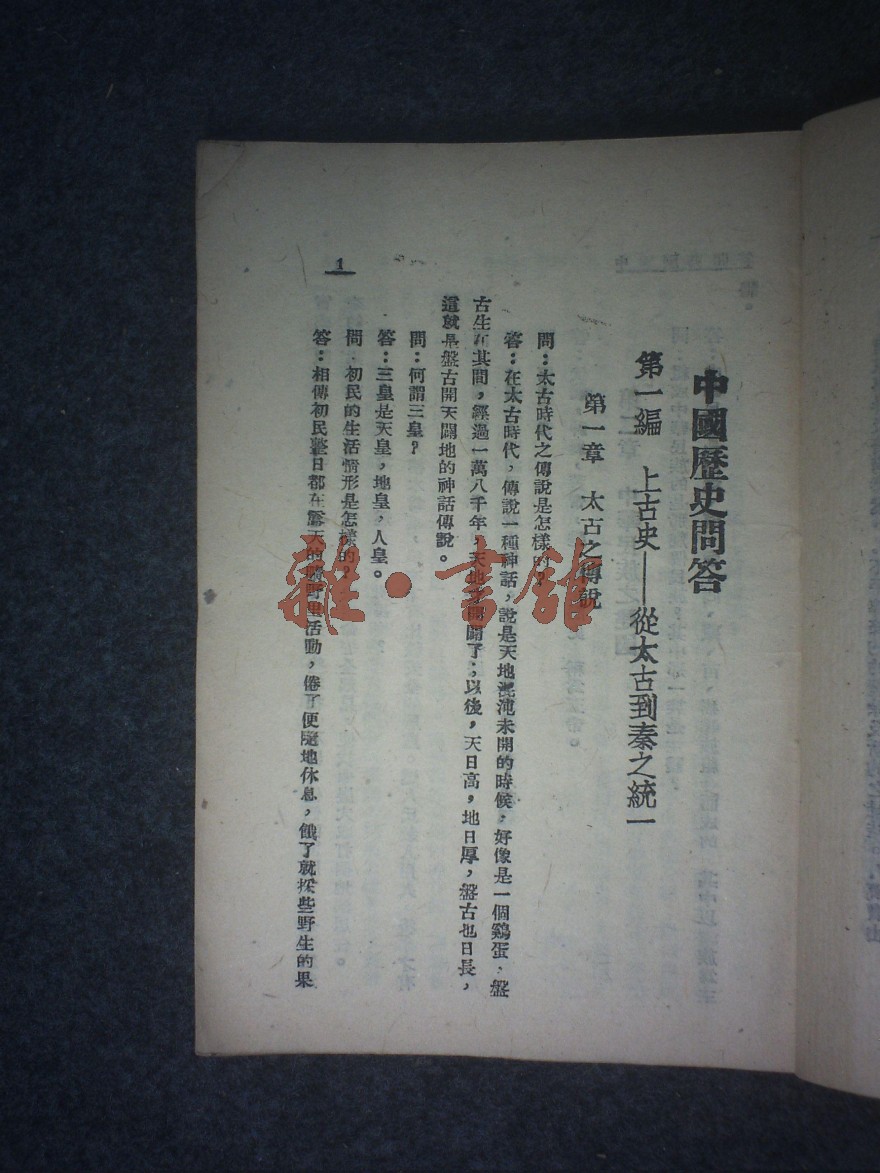 中國歷史問答
第一編　上古史——從太古到秦之統一
第一章　太古之傳說
問：太古時代之傳說是怎樣的？
答：在太古時代，傳說一種神話，說是天地混沌未開的時候，好像是一個鷄蛋，盤
古生在其間，經過一萬八千年，天地才開闢了；以後，天日高，地日厚，盤古也日長，
這就是盤古開天闢地的神話傳說。
問：何謂三皇？
答：三皇是天皇，地皇，人皇。
問：初民的生活情形是怎樣的？
答：相傳初民整日都在露天的曠野里活動，倦了便隨地休息，餓了就採些野生的果
1
雜·書館